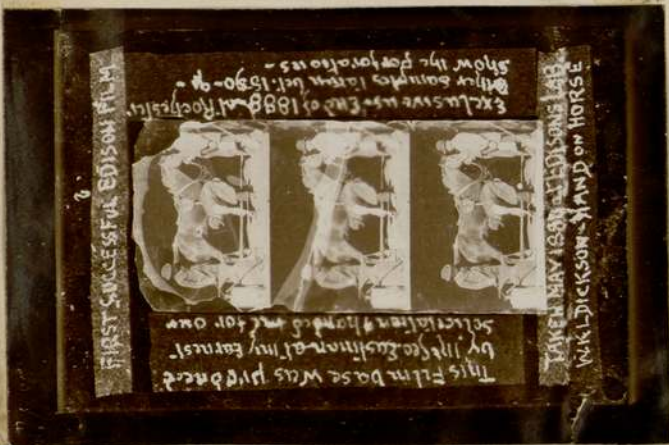 FIRST SUCCESSFUL EDISON FILM
This Film base was produced
by Mr Geo. Eastman at my earnest
solicitation & handed me for our
Exclusive use End of 1888 at Rochester,
Other samples taken Oct. 1890-
show the perforations -
TAKEN MAY EDISONS LAB.
W.K.L.DICKSON-HAND ON HORSE